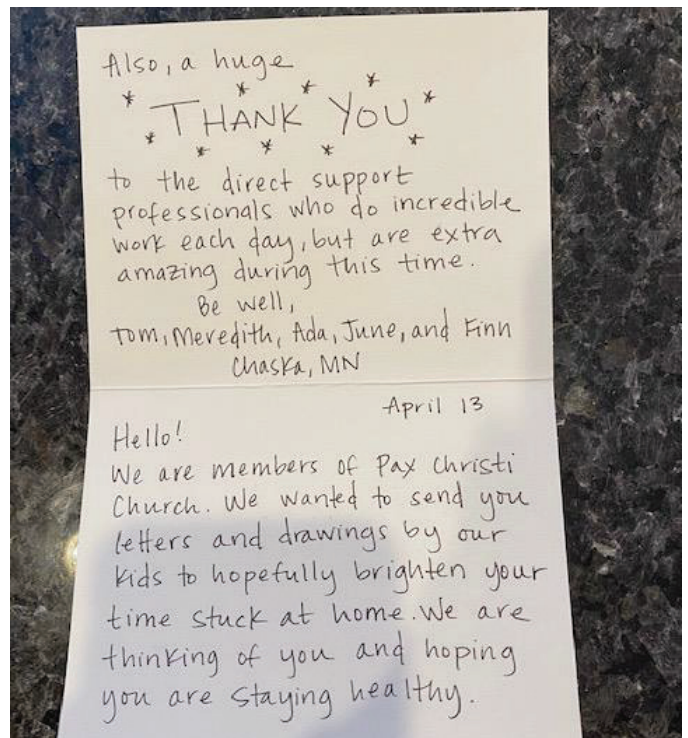 Also, a huge
THANK YOU
to the direct support
professionals who do incredible
work each day, but are extra
amazing during this time.
Be well,
Tom, Meredith, Ada, June, and Finn
Chaska, MN
April 13
Hello!
We are members of Pax Christi
Church. We wanted to send you
letters and drawings by our
kids to hopefully brighten your
time stuck at home. We are
thinking of you and hoping
you are staying healthy.